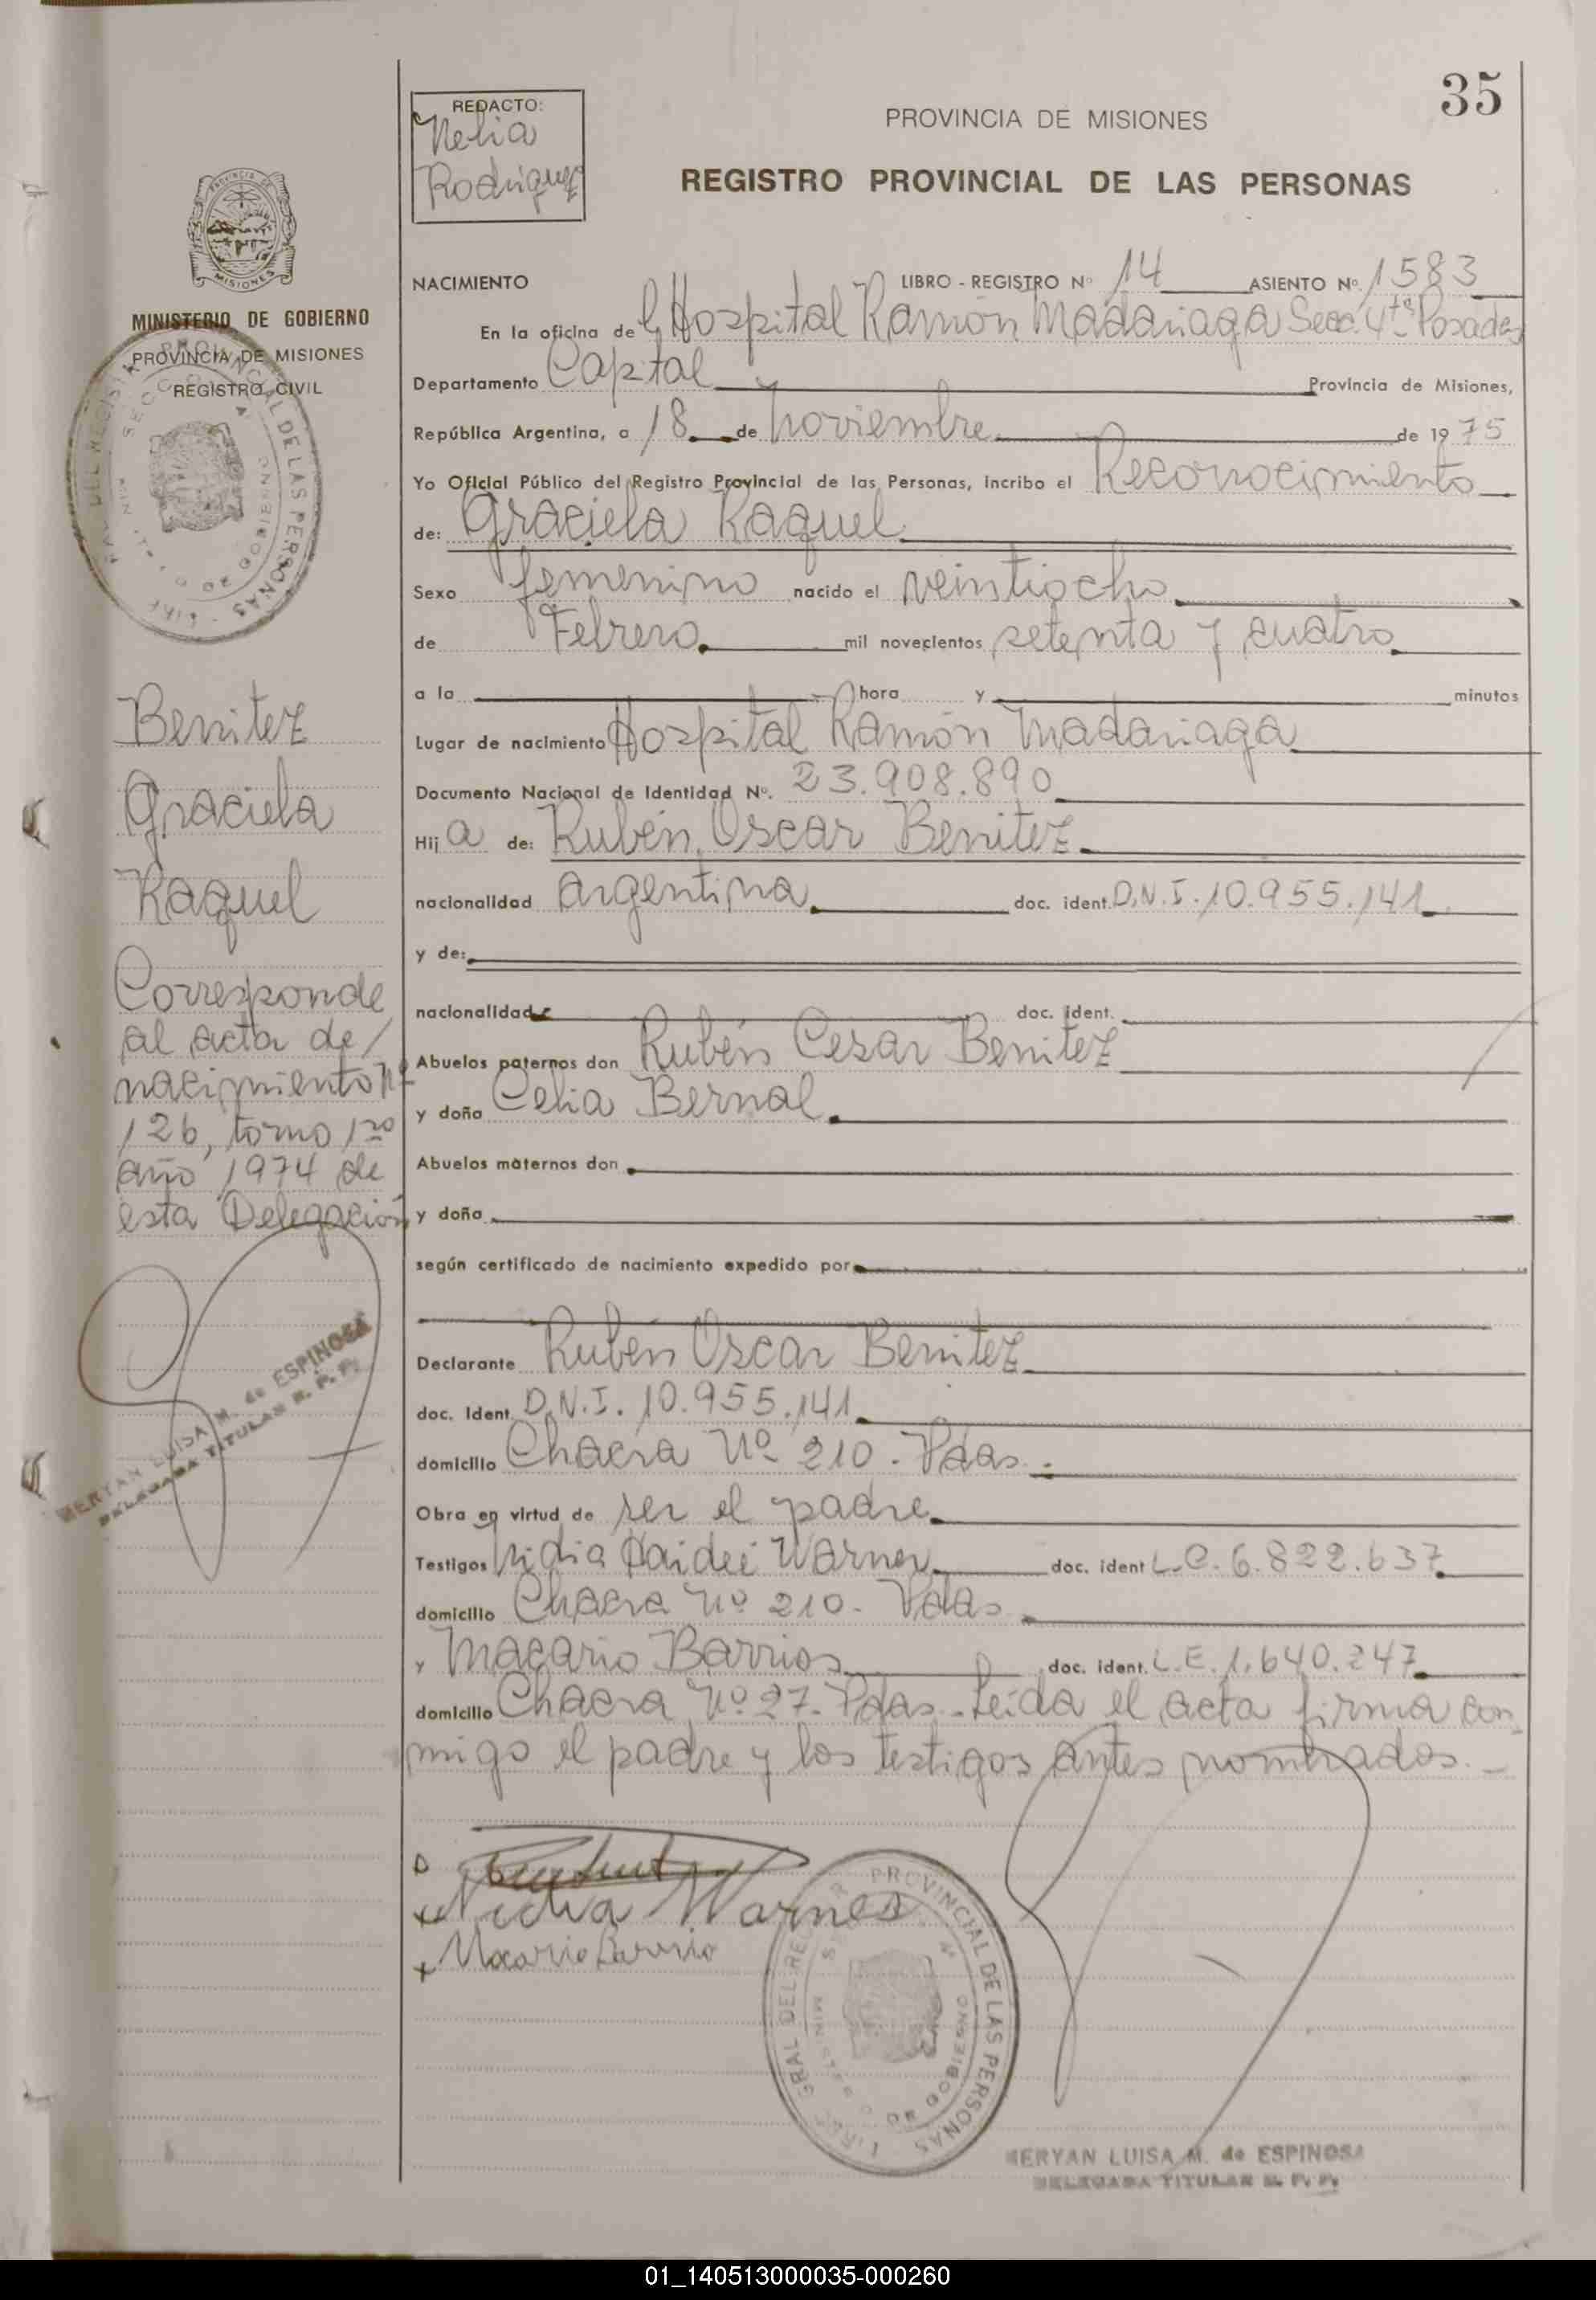 35
REDACTO:
Nelia
Rodriguez
PROVINCIA DE MISIONES
REGISTRO PROVINCIAL DE LAS PERSONAS
NACIMIENTO LIBRO - REGISTRO Nº 14 ASIENTO Nº 1583
En la oficina de Hospital Ramón Madariaga Secc. 4ta Posadas
Departamento Capital Provincia de Misiones,
República Argentina, a 18 de Noviembre de 1975
Yo Oficial Público del Registro Provincial de las Personas, incribo el Reconocimiento
de: Graciela Raquel
Sexo femenino nacido el veintiocho
de Febrero mil novecientos setenta y cuatro
a la hora y minutos
Lugar de nacimiento Hospital Ramón Madariaga
Documento Nacional de Identidad Nº. 23.908.890
Hija de: Rubén Oscar Benitez
nacionalidad argentina doc. ident. D.N.I. 10.955.141
y de:
nacionalidad doc. ident.
Abuelos paternos don Rubén Cesar Benitez
y doña Celia Bernal
Abuelos maternos don
y doña
según certificado de nacimiento expedido por
Declarante Rubén Oscar Benitez
doc. ident. D.N.I. 10.955.141
domicilio Chacra Nº 210. Pdas.
Obra en virtud de ser el padre
Testigos Nidia Haideé Warner doc. ident L.C. 6.822.637
domicilio Chacra Nº 210. Pdas
y Macario Barrios doc. ident. L.E. 1.640.247
domicilio Chacra Nº 27. Pdas. Leida el acta firma con-
migo el padre y los testigos antes nombrados.
x Nidia Warner
x Macario Barrio
GRAL DEL REGISTR PROVINCIAL DE LAS PERSONAS
MERYAN LUISA M. de ESPINOSA
DELEGADA TITULAR R. P. P.
MINISTERIO DE GOBIERNO
PROVINCIA DE MISIONES
REGISTRO CIVIL
Benitez
Graciela
Raquel
Corresponde
al acta de
nacimiento Nº
126, tomo 1ro
año 1974 de
esta Delegación
MERYAN LUISA M. de ESPINOSA
DELEGADA TITULAR R. P. P.
01_140513000035-000260